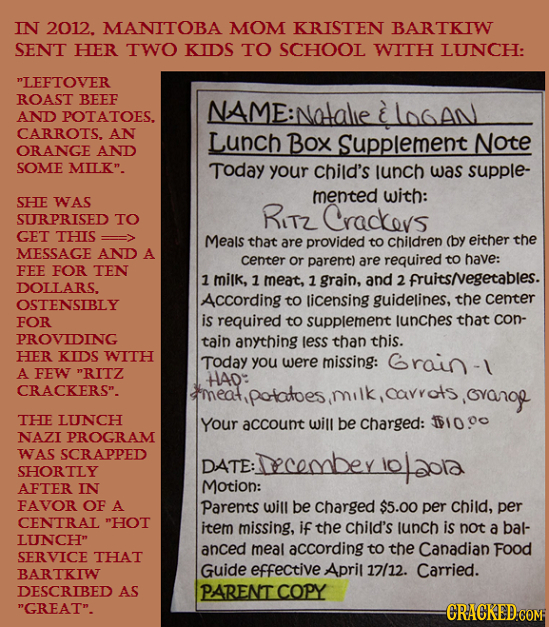 IN 2012, MANITOBA MOM KRISTEN BARTKIW
SENT HER TWO KIDS TO SCHOOL WITH LUNCH:
"LEFTOVER
ROAST BEEF
AND POTATOES,
CARROTS, AN
ORANGE AND
SOME MILK".
SHE WAS
SURPRISED TO
GET THIS =>
MESSAGE AND A
FEE FOR TEN
DOLLARS,
OSTENSIBLY
FOR
PROVIDING
HER KIDS WITH
A FEW "RITZ
CRACKERS".
THE LUNCH
NAZI PROGRAM
WAS SCRAPPED
SHORTLY
AFTER IN
FAVOR OF A
CENTRAL "HOT
LUNCH"
SERVICE THAT
BARTKIW
DESCRIBED AS
"GREAT".
NAME: Natalie & LOGAN
Lunch Box Supplement Note
Today your child's lunch was supple-
mented with:
RITZ Crackers
Meals that are provided to children (by either the
center or parent) are required to have:
1 milk, 1 meat, 1 grain, and 2 fruits/vegetables.
According to licensing guidelines, the center
is required to supplement lunches that con-
tain anything less than this.
Today you were missing: Grain - 1
HAD:
*meat, potatoes, milk, carrots, orange
Your account will be charged: $10.00
DATE: December 10/2012
Motion:
Parents will be charged $5.00 per child, per
item missing, if the child's lunch is not a bal-
anced meal according to the Canadian Food
Guide effective April 17/12. Carried.
PARENT COPY
CRACKED.COM